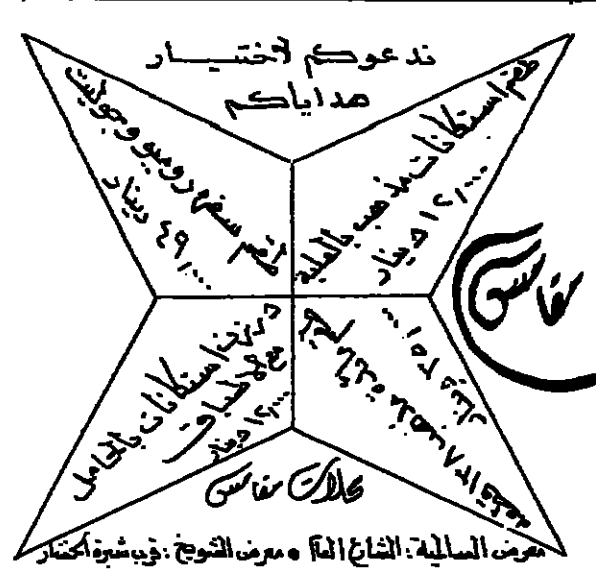 ندعوكم لاختيار
هداياكم
طقم استكانات مذهب بالعلبة
١٢,٠٠٠ دينار
طقم سفرة روميو وجوليت
٤٩,٠٠٠ دينار
درزن استكانات بالحامل
مع الأطباق
١٢,٠٠٠ دينار
١٣٨ قطعة
٢٥١,٠٠٠ دينار
مقامس
محلات مقامس
معرض السالمية: الشارع العام • معرض الشويخ: قرب شبرة الخضار